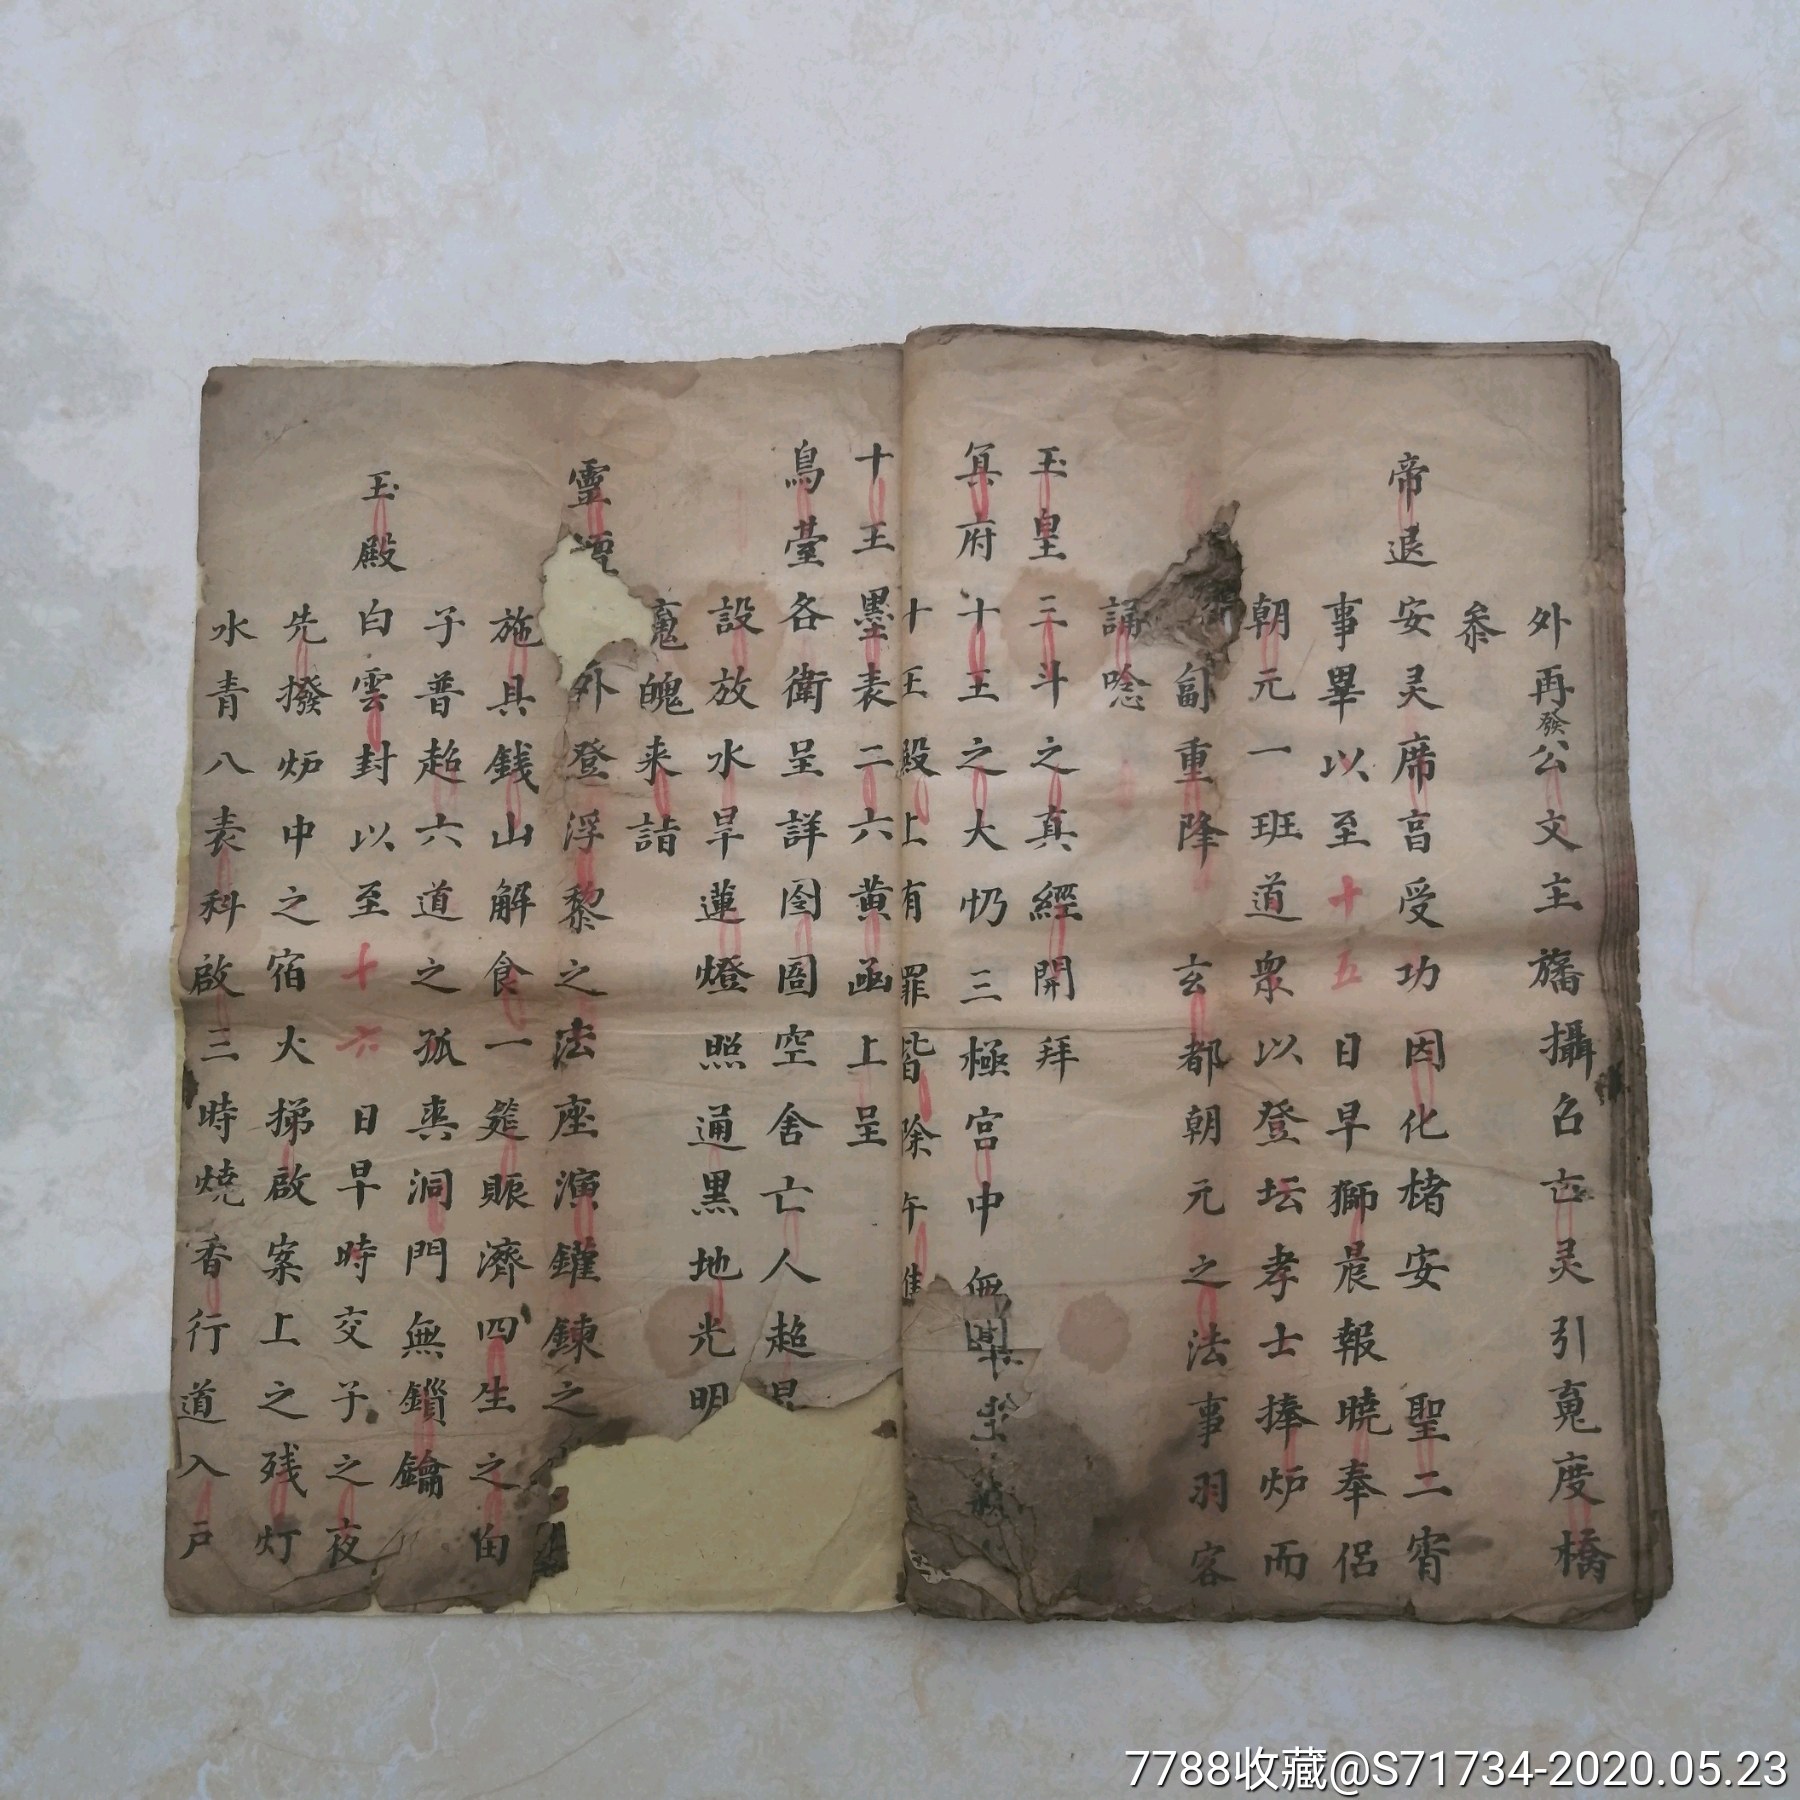 外再發公文主旛攝召亡灵引䰟度橋
叅
帝退安灵席亯受功因化楮安聖二宵
事畢以至十五日早獅晨報曉奉侣
朝元一班道衆以登坛孝士捧炉而
副重降玄都朝元之法事羽客
誦唸
玉皇三斗之真經開拜
冥府十王之大忏三極宫中無
十王殿上有罪皆除午
十王墨表二六黄函上呈
鳥臺各衛呈詳囹圄空舍亡人超昇
設放水旱蓮燈照通黑地光明
䰟魄来詣
靈
外登浮黎之法座演鑵鍊之
施具錢山解食一筵賑濟四生之由
子普超六道之孤㷠洞門無鎖鑰
玉殿白雲封以至十六日早時交子之夜
先撥炉中之宿火挮啟案上之残灯
水青八表科啟三時燒香行道入户
7788收藏@S71734-2020.05.23